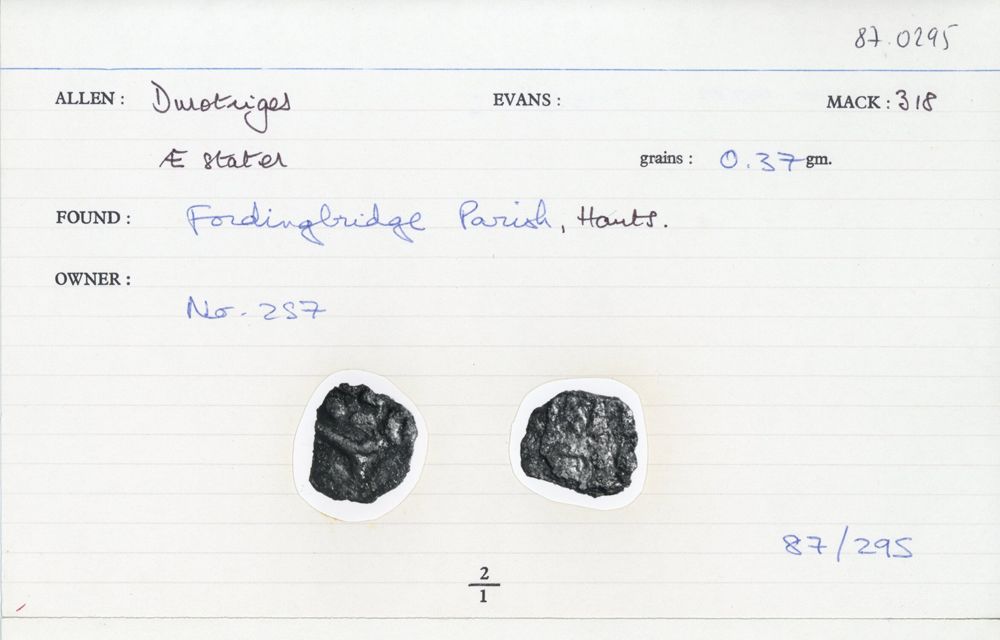 87.0295
ALLEN : Durotriges EVANS : MACK : 318
Æ stater grains : 0.37 gm.
FOUND : Fordingbridge Parish, Hants.
OWNER :
No. 257
87/295
2
1